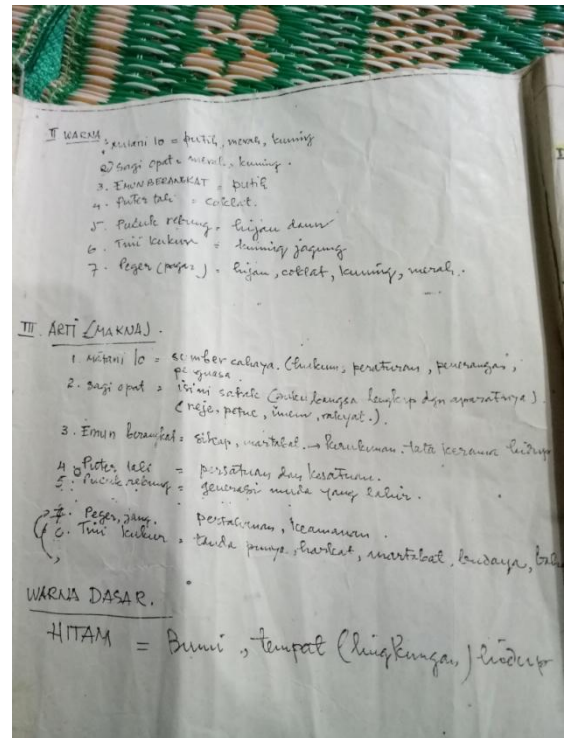 II WARNA
: Matani lo = putih, merah, kuning
2) Sagi opat = merah, kuning.
3. EMUN BERANGKAT = putih
4. Puter tali = coklat.
5. Pucuk rebung = hijau daun
6. Tini kukur = kuning jagung
7. Peger (pagar) = hijau, coklat, kuning, merah.
III. ARTI (MAKNA).
1. Matani lo = sumber cahaya. (hukum, peraturan, penerangan,
penguasa.
2. Sagi opat = isini satak (suku bangsa lengkap dgn aparatnya).
(reje, petue, imem, rakyat.).
3. Emun berangkat = sikap, martabat → kerukunan. tata kerama hidup
4. Puter tali = persatuan dan kesatuan.
5. Pucuk rebung = generasi muda yang lahir.
7. Peger, jang. pertahanan, keamanan.
6. Tini kukur = tanda punya, harkat, martabat, budaya,
WARNA DASAR.
HITAM = Bumi, tempat (lingkungan) hidup